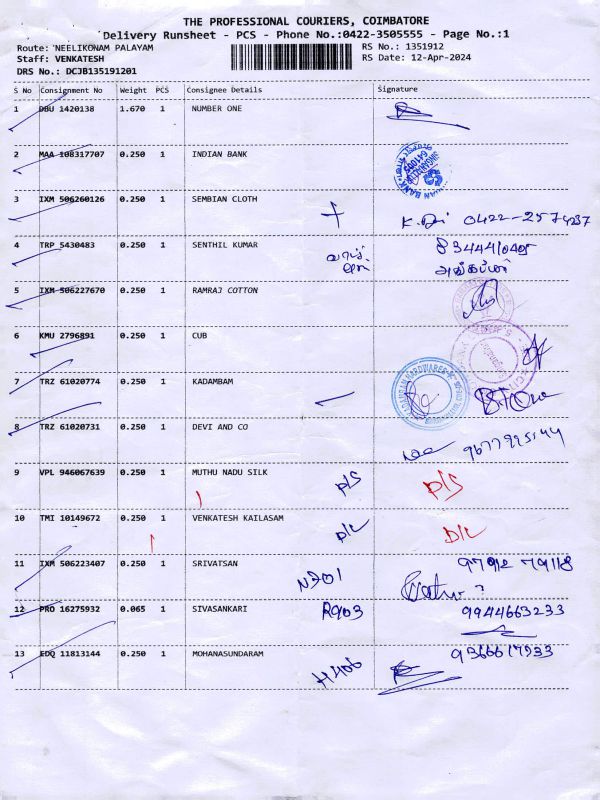 THE PROFESSIONAL COURIERS, COIMBATORE
Delivery Runsheet - PCS - Phone No.:0422-3505555 - Page No.:1
Route: NEELIKONAM PALAYAM RS No.: 1351912
Staff: VENKATESH RS Date: 12-Apr-2024
DRS No.: DCJB135191201
S No Consignment No Weight PCS Consignee Details Signature
1 DBU 1420138 1.670 1 NUMBER ONE
2 MAA 108317707 0.250 1 INDIAN BANK
3 IXM 506260126 0.250 1 SEMBIAN CLOTH 0422-2574237
4 TRP 5430483 0.250 1 SENTHIL KUMAR
5 IXM 506227670 0.250 1 RAMRAJ COTTON
6 KMU 2796891 0.250 1 CUB
7 TRZ 61020774 0.250 1 KADAMBAM
8 TRZ 61020731 0.250 1 DEVI AND CO
9 VPL 946067639 0.250 1 MUTHU NADU SILK D/S D/S
10 TMI 10149672 0.250 1 VENKATESH KAILASAM D/L D/L
11 IXM 506223407 0.250 1 SRIVATSAN N201
12 PRO 16275932 0.065 1 SIVASANKARI R903 9944663233
13 EDQ 11813144 0.250 1 MOHANASUNDARAM H406 9366617933